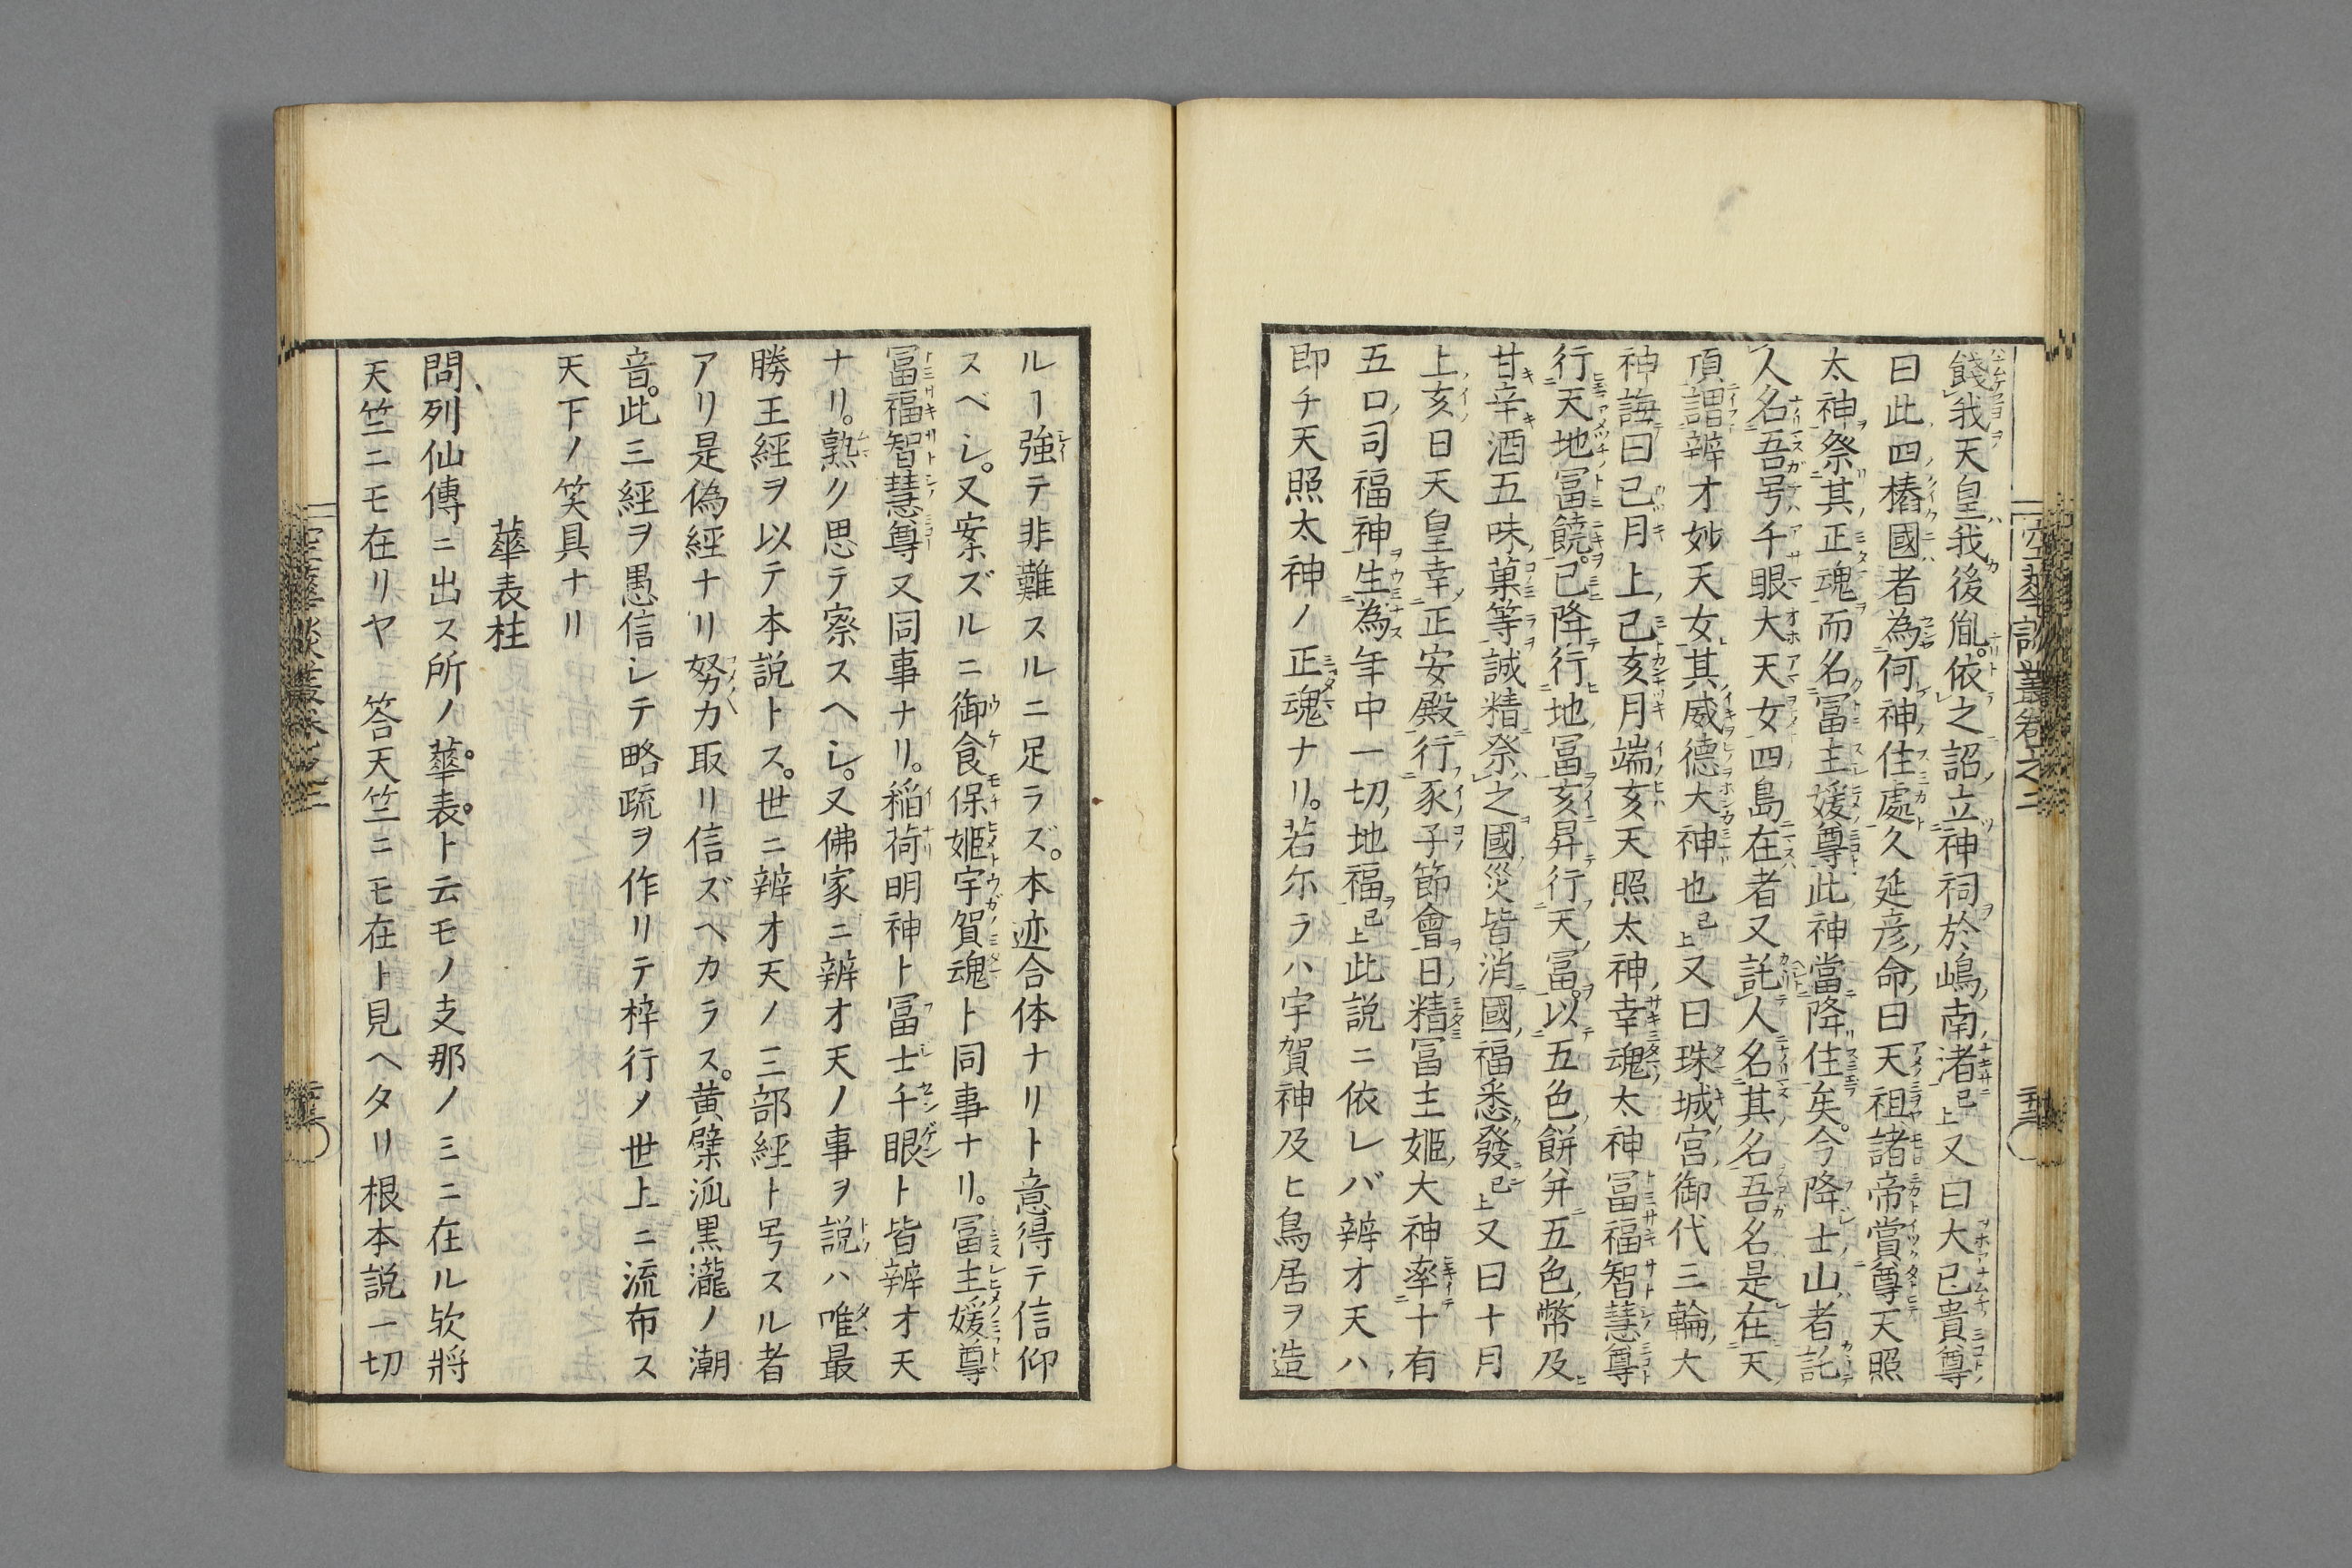 餞我天皇我後胤。依之詔立神祠於嶋南渚已上又曰大已貴尊
曰此四樁國者為何神住處久延彦命曰天祖諸帝賞尊天照
太神祭其正魂而名冨主媛尊此神當降住矣。今降士山者託
人名吾号千眼大天女四島在者又託人名其名吾名是在天
頂謂辨才妙天女其威德大神也已上又曰珠城宮御代三輪大
神誨曰已月上已亥月端亥天照太神幸魂太神冨福智慧尊
行天地冨饒。已降行地冨亥昇行天冨。以五色餅并五色幣及
甘辛酒五味菓等誠精祭之國災皆消國福悉發已上又曰十月
上亥日天皇幸正安殿行豕子節會日精冨主姬大神率十有
五口司福神生為年中一切地福已上此説ニ依レバ辨才天ハ
即チ天照太神ノ正魂ナリ。若尓ラハ宇賀神及ヒ鳥居ヲ造
ルヿ強テ非難スルニ足ラズ。本迹合体ナリト意得テ信仰
スベシ。又案ズルニ御食保姬宇賀魂ト同事ナリ。冨主媛尊
冨福智慧尊又同事ナリ。稲荷明神ト冨士千眼ト皆辨才天
ナリ。熟ク思テ察スヘシ。又佛家ニ辨才天ノ事ヲ説ハ唯最
勝王經ヲ以テ本説トス。世ニ辨才天ノ三部經ト号スル者
アリ是偽經ナリ努力取リ信ズヘカラス。黄檗派黒瀧ノ潮
音。此三經ヲ愚信シテ略疏ヲ作リテ梓行ノ世上ニ流布ス
天下ノ笑具ナリ
華表柱
問列仙傳ニ出ス所ノ華。表。ト云モノ支那ノミニ在ル欤將
天竺ニモ在リヤ 答天竺ニモ在ト見ヘタリ根本説一切